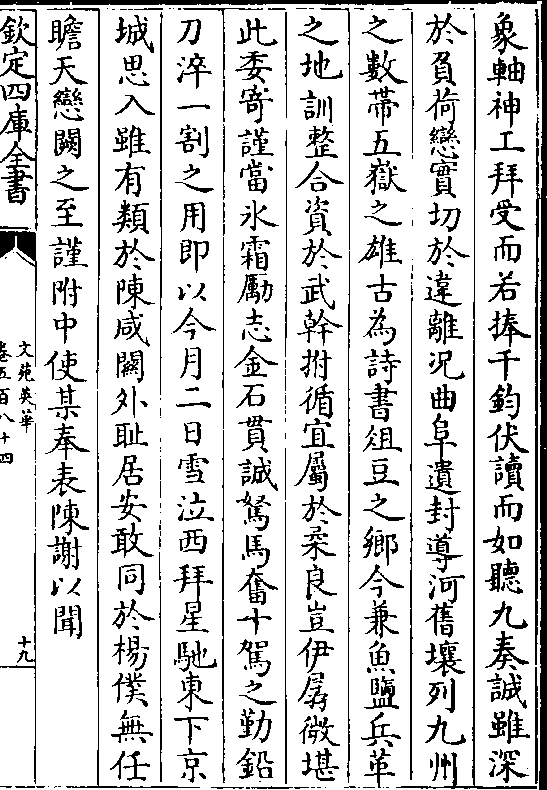 象軸神工拜受而若捧千鈞伏讀而如聽九奏誠雖深
於負荷戀實切於違離况曲阜遺封導河舊壤列九州
之數帶五嶽之雄古為詩書俎豆之鄉今兼魚鹽兵革
之地訓整合資於武幹拊循宜屬於柔良豈伊孱微堪
此委寄謹當氷霜勵志金石貫誠駑馬奮十駕之勤鉛
刀淬一割之用即以今月二日雪泣西拜星馳東下京
城思入雖有類於陳咸闗外耻居安敢同於楊僕無任
瞻天戀闕之至謹附中使某奉表陳謝以聞
欽定四庫全書
文苑英華
卷五百八十四
十九